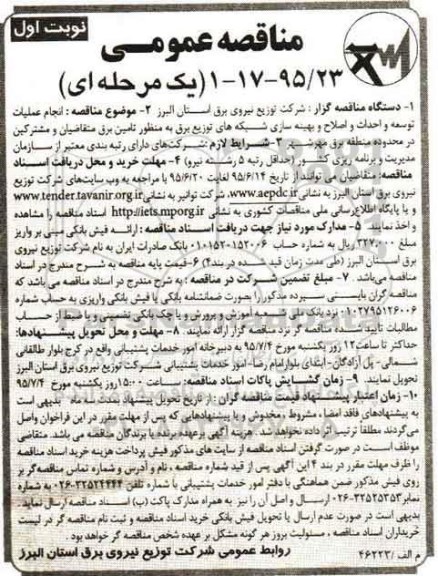 نوبت اول
مناقصه عمومی
۱-۱۷-۹۵/۲۳ (یک مرحله ای)
۱- دستگاه مناقصه گزار : شرکت توزیع نیروی برق استان البرز ۲- موضوع مناقصه : انجام عملیات
توسعه و احداث و اصلاح و بهینه سازی شبکه های توزیع برق به منظور تامین برق متقاضیان و مشترکین
در محدوده منطقه برق مهرشهر ۳- شرایط لازم :شرکت‌های دارای رتبه بندی معتبر از سازمان
مدیریت و برنامه ریزی کشور (حداقل رتبه ۵ رشته نیرو) ۴- مهلت خرید و محل دریافت اسناد
مناقصه: متقاضیان می توانند از تاریخ ۹۵/۶/۱۴ لغایت ۹۵/۶/۲۰ با مراجعه به وب سایت‌های شرکت توزیع
نیروی برق استان البرز به نشانی www.aepdc.ir، شرکت توانیر به نشانی www.tender.tavanir.org.ir
و یا پایگاه اطلاع رسانی ملی مناقصات کشوری به نشانی http://iets.mporg.ir اسناد مناقصه را مشاهده
و اخذ نمایند. ۵- مدارک مورد نیاز جهت دریافت اسناد مناقصه : ارائه فیش بانکی مبنی بر واریز
مبلغ ۳۲۷.۰۰۰ ریال به شماره حساب ۰۱۰۱۵۲۰۱۵۲۰۰۶ بانک صادرات ایران به نام شرکت توزیع نیروی
برق استان البرز (طی مدت زمان قید شده در بند۴) ۶- قیمت پایه مناقصه به شرح مندرج در اسناد
مناقصه می‌باشد . ۷- مبلغ تضمین شرکت در مناقصه : به شرح مندرج در اسناد مناقصه می باشد که
مناقصه گران بایستی سپرده مذکور را بصورت ضمانتنامه بانکی یا فیش بانکی واریزی به حساب شماره
۱۰۲۷۹۵۱۲۶۰۰۶ نزد بانک ملی شعبه آموزش و پرورش و یا چک بانکی تضمینی و یا ضبط از حساب
مطالبات تایید شده مناقصه گر نزد مناقصه گزار ارائه نمایند. ۸- مهلت و محل تحویل پیشنهادها:
حداکثر تا ساعت۱۲ روز یکشنبه مورخ ۹۵/۷/۴ به دبیرخانه امور خدمات پشتیبانی واقع در کرج بلوار طالقانی
شمالی- پل آزادگان- ابتدای بلوار امام رضا- امور خدمات پشتیبانی شرکت توزیع نیروی برق استان البرز
تحویل نمایند. ۹- زمان گشایش پاکات اسناد مناقصه: ساعت ۱۵:۰۰ روز یکشنبه مورخ ۹۵/۷/۴
۱۰- زمان اعتبار پیشنهاد قیمت مناقصه گران : از تاریخ تحویل پیشنهاد بمدت سه ماه . بدیهی است
به پیشنهادهای فاقد امضا ، مشروط ، مخدوش و یا پیشنهادهایی که پس از مهلت مقرر در این فراخوان واصل
می‌گردند مطلقاً ترتیب اثر داده نخواهد شد. هزینه آگهی برعهده برنده یا برندگان مناقصه می باشد. متقاضی
موظف است در صورت گرفتن اسناد مناقصه از سایت های مذکور فیش پرداخت هزینه خرید اسناد مناقصه
را ظرف مهلت مقرر در بند ۴ این آگهی پس از قید شماره مناقصه ، نام و آدرس و شماره تماس مناقصه گر بر
روی فیش مذکور ضمن هماهنگی با دفتر امور خدمات پشتیبانی با شماره تلفن
ارسال و اصل آن را نیز به همراه مدارک پاکت (ب) اسناد مناقصه ارسال نمایند.
بدیهی است در صورت عدم ارسال یا تحویل فیش بانکی خرید اسناد مناقصه و ثبت نام مناقصه گر در لیست
خریداران اسناد مناقصه ، مسئولیت بروز هر گونه مشکل بر عهده شخص مناقصه گر خواهد بود .
م الف /۴۶۲۲۳ روابط عمومی شرکت توزیع نیروی برق استان البرز